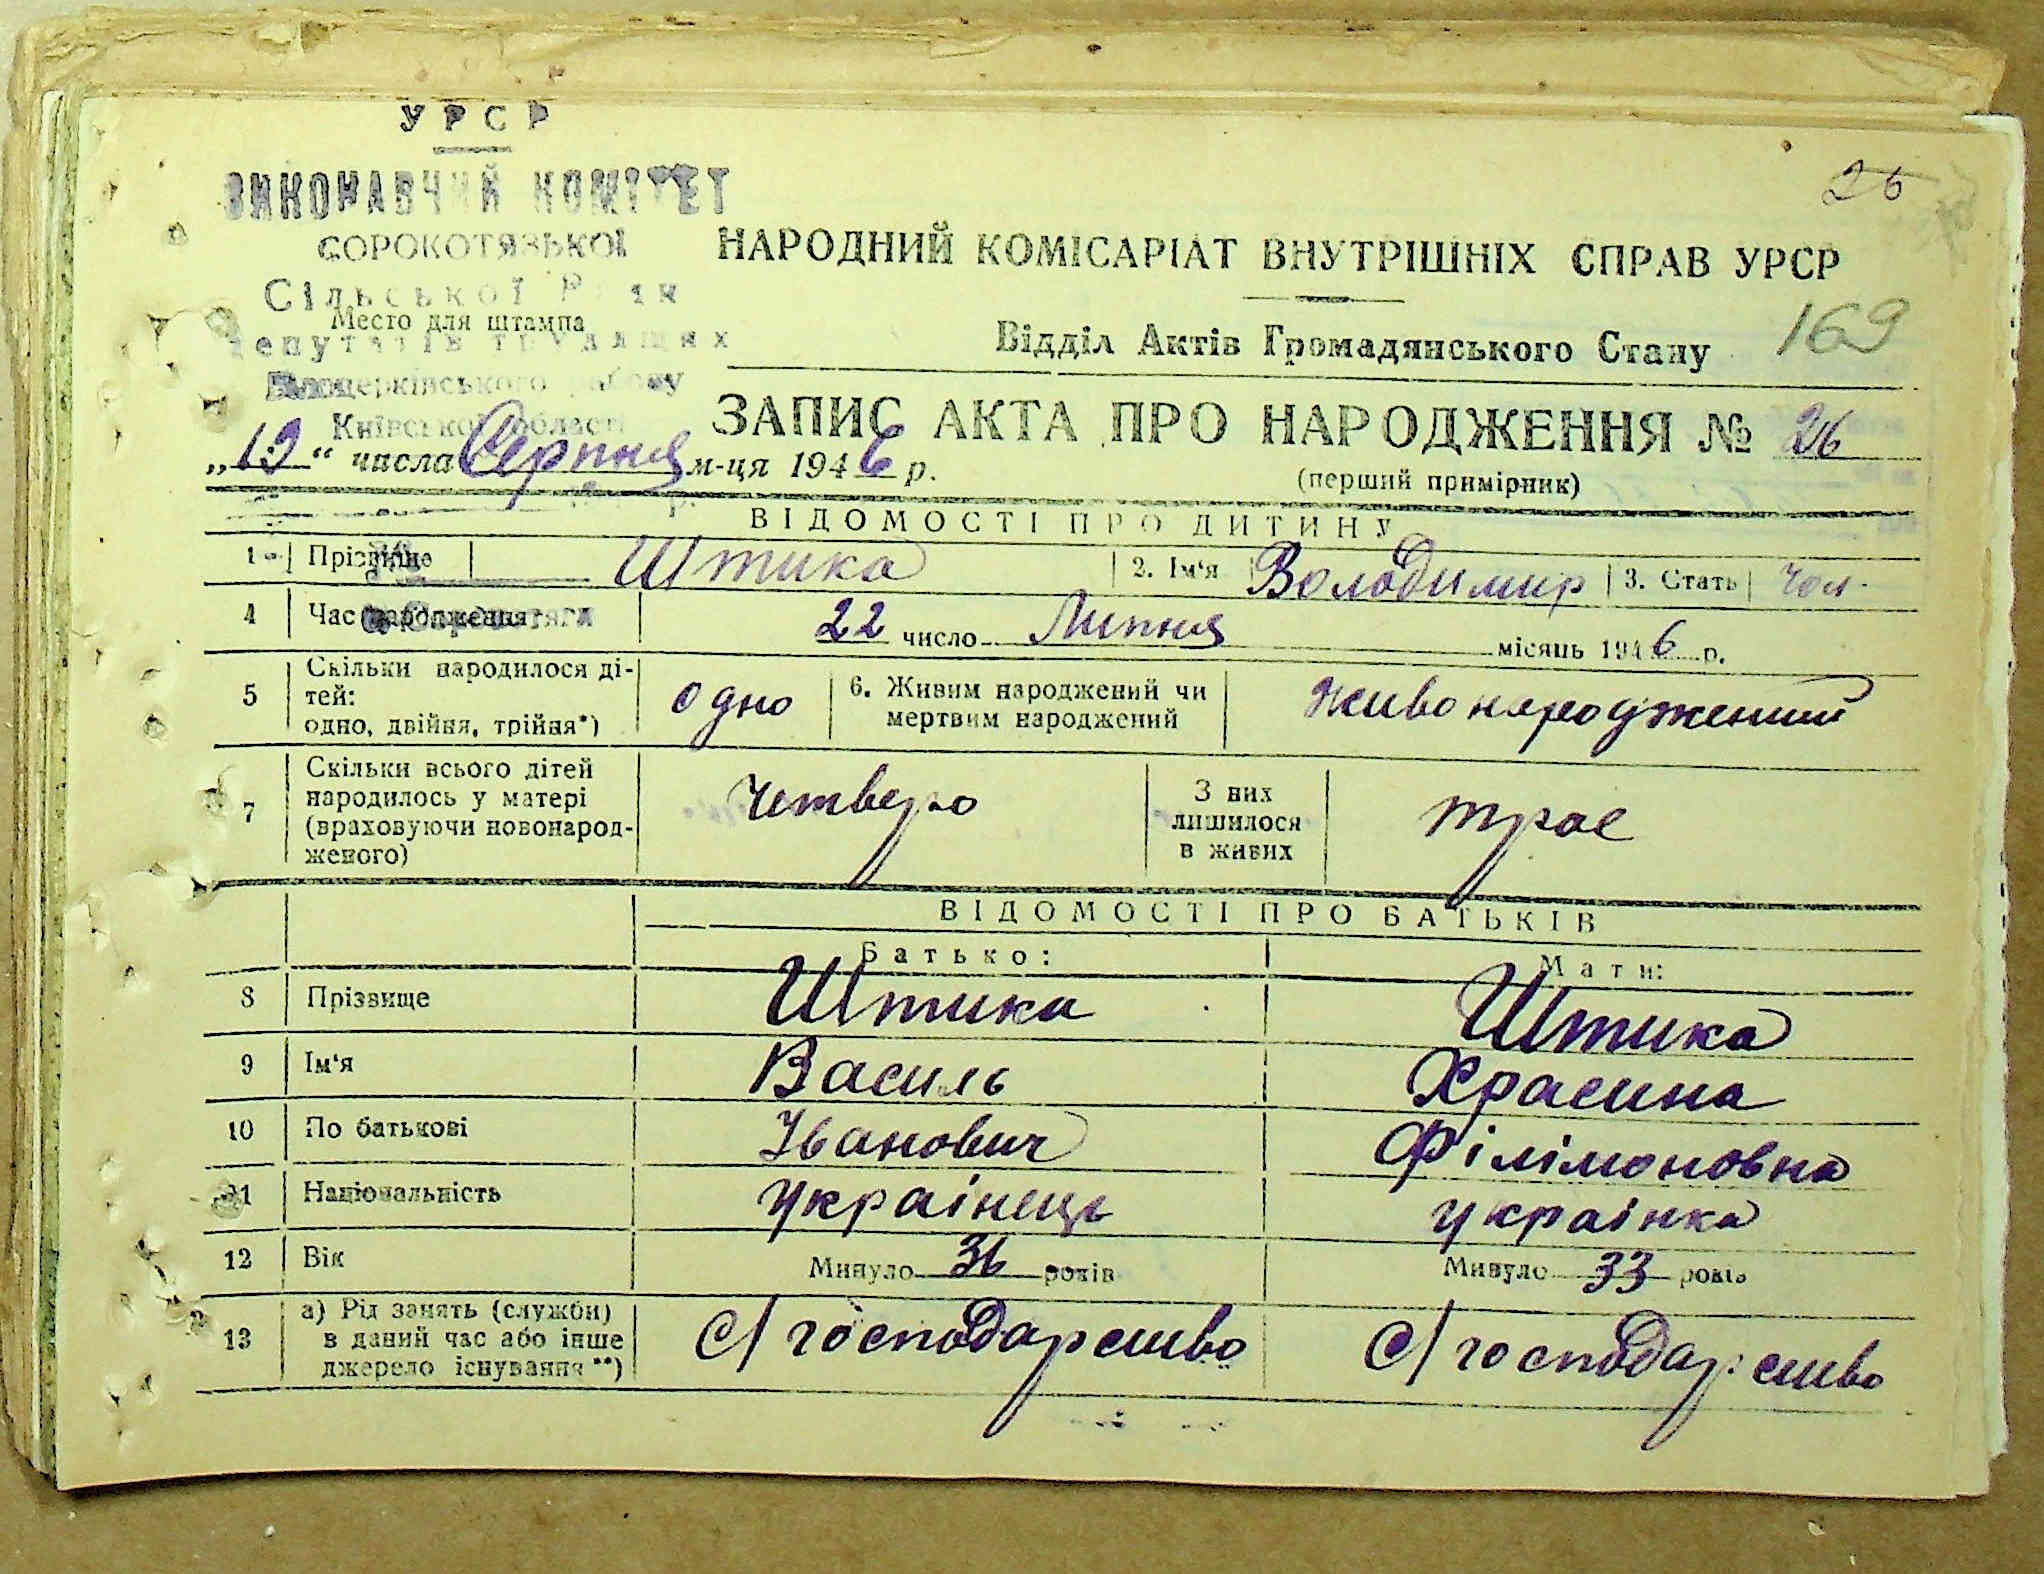 УРСР
ВИКОНАВЧИЙ КОМІТЕТ
СОРОКОТЯЗЬКОЇ
Сільської Ради
Место для штампа
депутатів трудящих
Білоцерківського району
Київської області
26
НАРОДНИЙ КОМІСАРІАТ ВНУТРІШНІХ СПРАВ УРСР
Відділ Актів Громадянського Стану
169
ЗАПИС АКТА ПРО НАРОДЖЕННЯ № 26
„19“ числа Серпня м-ця 1946 р.
(перший примірник)
ВІДОМОСТІ ПРО ДИТИНУ
1 Прізвище Штика 2. Ім‘я Володимир 3. Стать чол.
4 Час народження 22 число Липня місяць 1946 р.
5 Скільки народилося ді-
тей:
одно, двійня, трійня*) одно 6. Живим народжений чи
мертвим народжений живонароджений
7 Скільки всього дітей
народилось у матері
(враховуючи новонарод-
женого) Четверо З них
лишилося
в живих троє
ВІДОМОСТІ ПРО БАТЬКІВ
Батько: Мати:
8 Прізвище Штика Штика
9 Ім‘я Василь Храсина
10 По батькові Іванович Філімоновна
11 Національність українець українка
12 Вік Минуло 36 років Минуло 33 років
13 а) Рід занять (служби)
в даний час або інше
джерело існування **) С/господарство С/господарство